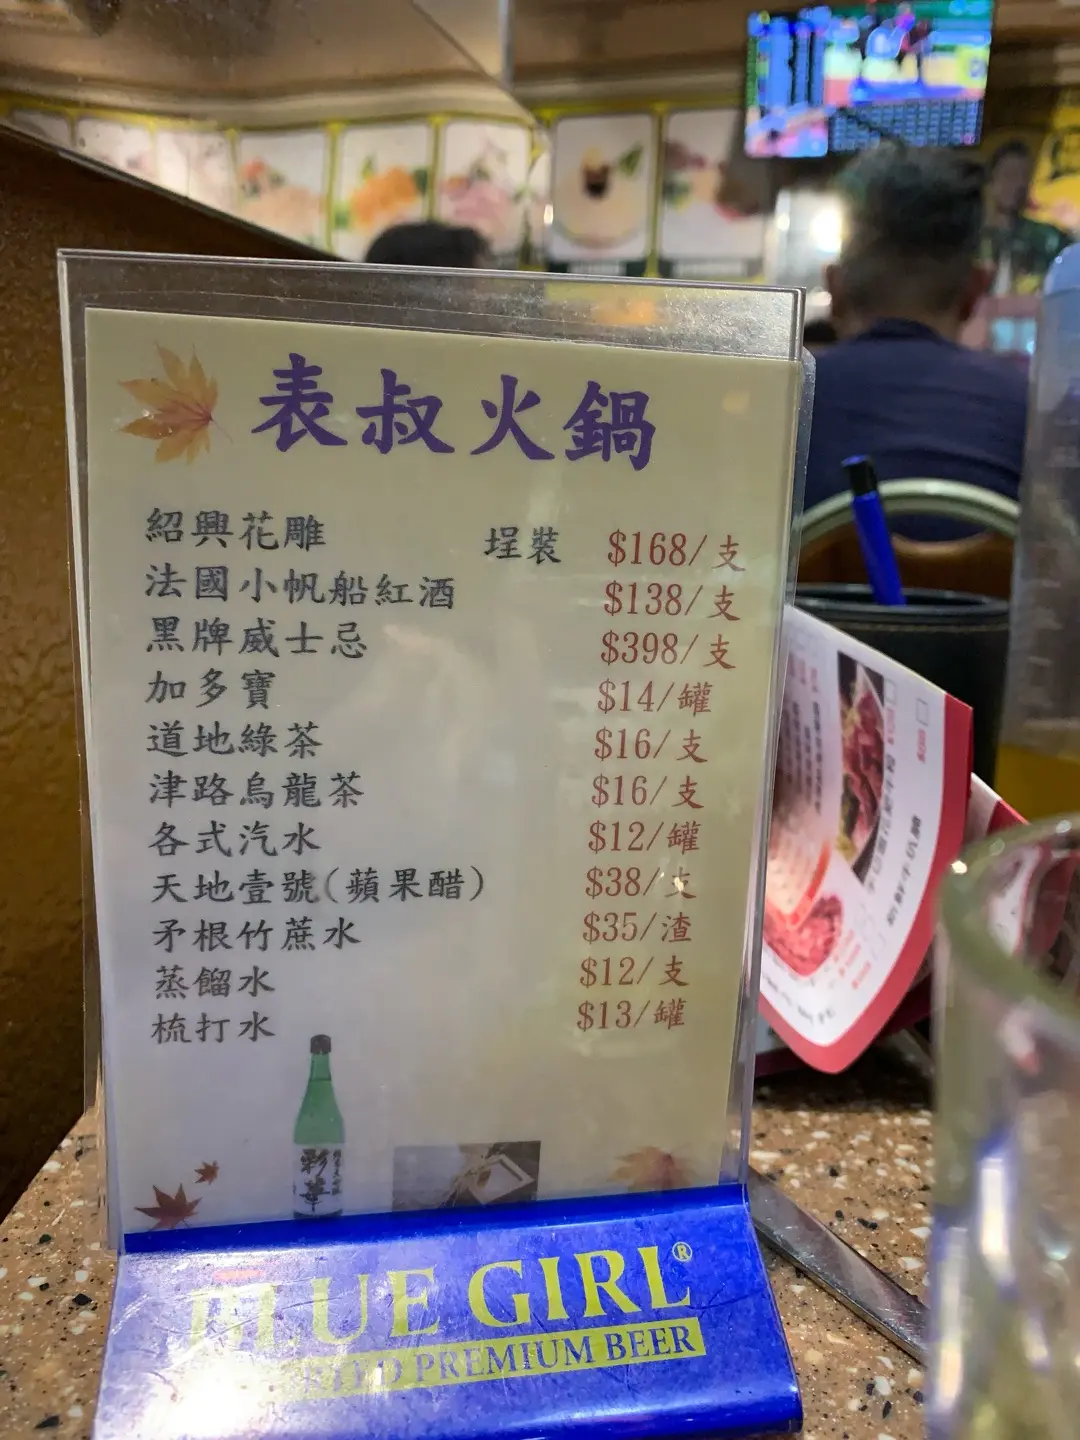 表叔火鍋
紹興花雕 埕裝 $168/支
法國小帆船紅酒 $138/支
黑牌威士忌 $398/支
加多寶 $14/罐
道地綠茶 $16/支
津路烏龍茶 $16/支
各式汽水 $12/罐
天地壹號(蘋果醋) $38/支
矛根竹蔗水 $35/渣
蒸餾水 $12/支
梳打水 $13/罐
彩華
BLUE GIRL®
PREMIUM BEER